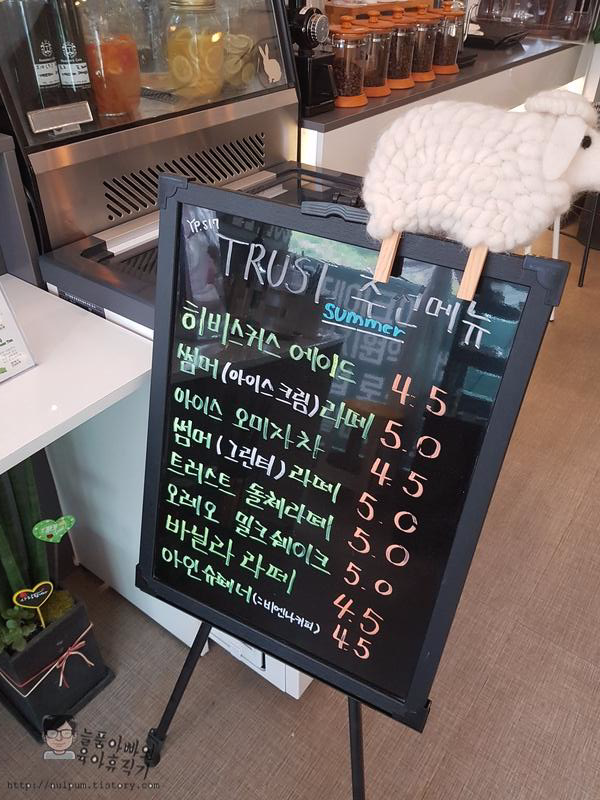 TRUST 추천메뉴
summer
히비스커스 에이드 4.5
썸머(아이스크림)라떼 5.0
아이스 오미자차 4.5
썸머(그린티)라떼 5.0
트러스트 돌체라떼 5.0
오레오 밀크쉐이크 5.0
바닐라 라떼 4.5
아인슈페너(=비엔나커피) 4.5
늘품아빠의
육아휴직기
http://nulpum.tistory.com